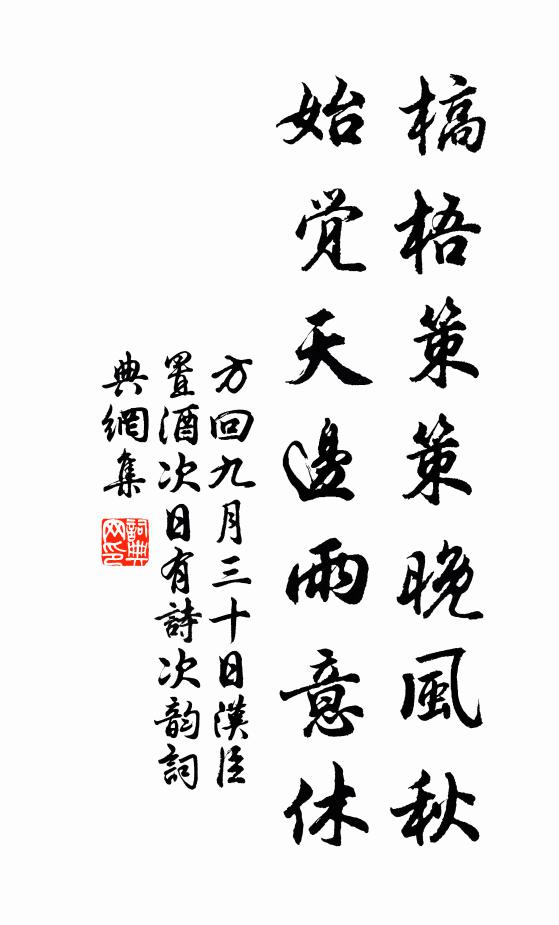 槁梧策策晚風秋
始覚天邊雨意休
方回九月三十日漢臣
置酒次日有詩次韵詞
典網集
詞典
网印